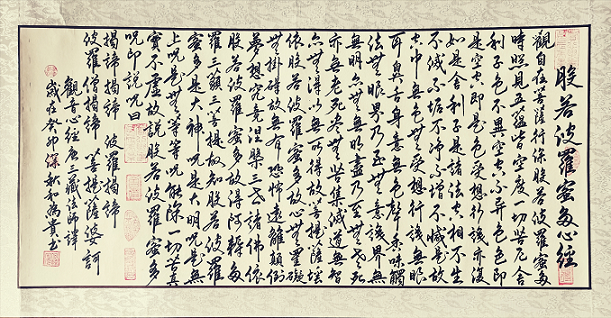 般若波羅蜜多心經
觀自在菩薩行深般若波羅蜜多
時照見五蘊皆空度一切苦厄舍
利子色不異空空不異色色即
是空空即是色受想行識亦復
如是舍利子是諸法空相不生
不滅不垢不淨不增不減是故
空中無色無受想行識無眼
耳鼻舌身意無色聲香味觸
法無眼界乃至無意識界無
無明亦無無明盡乃至無老死
亦無老死盡無苦集滅道無智
亦無得以無所得故菩提薩埵
依般若波羅蜜多故心無罣礙
無掛碍故無有恐怖遠離顛倒
夢想究竟涅槃三世諸佛依
般若波羅蜜多故得阿耨多
羅三藐三菩提故知般若波羅
蜜多是大神咒是大明咒是無
上咒是無等等咒能除一切苦真
實不虛故說般若波羅蜜多
咒即說咒曰
揭諦揭諦 波羅揭諦
波羅僧揭諦 菩提薩婆訶
觀音心經唐三藏法師譯
歲在癸卯深秋